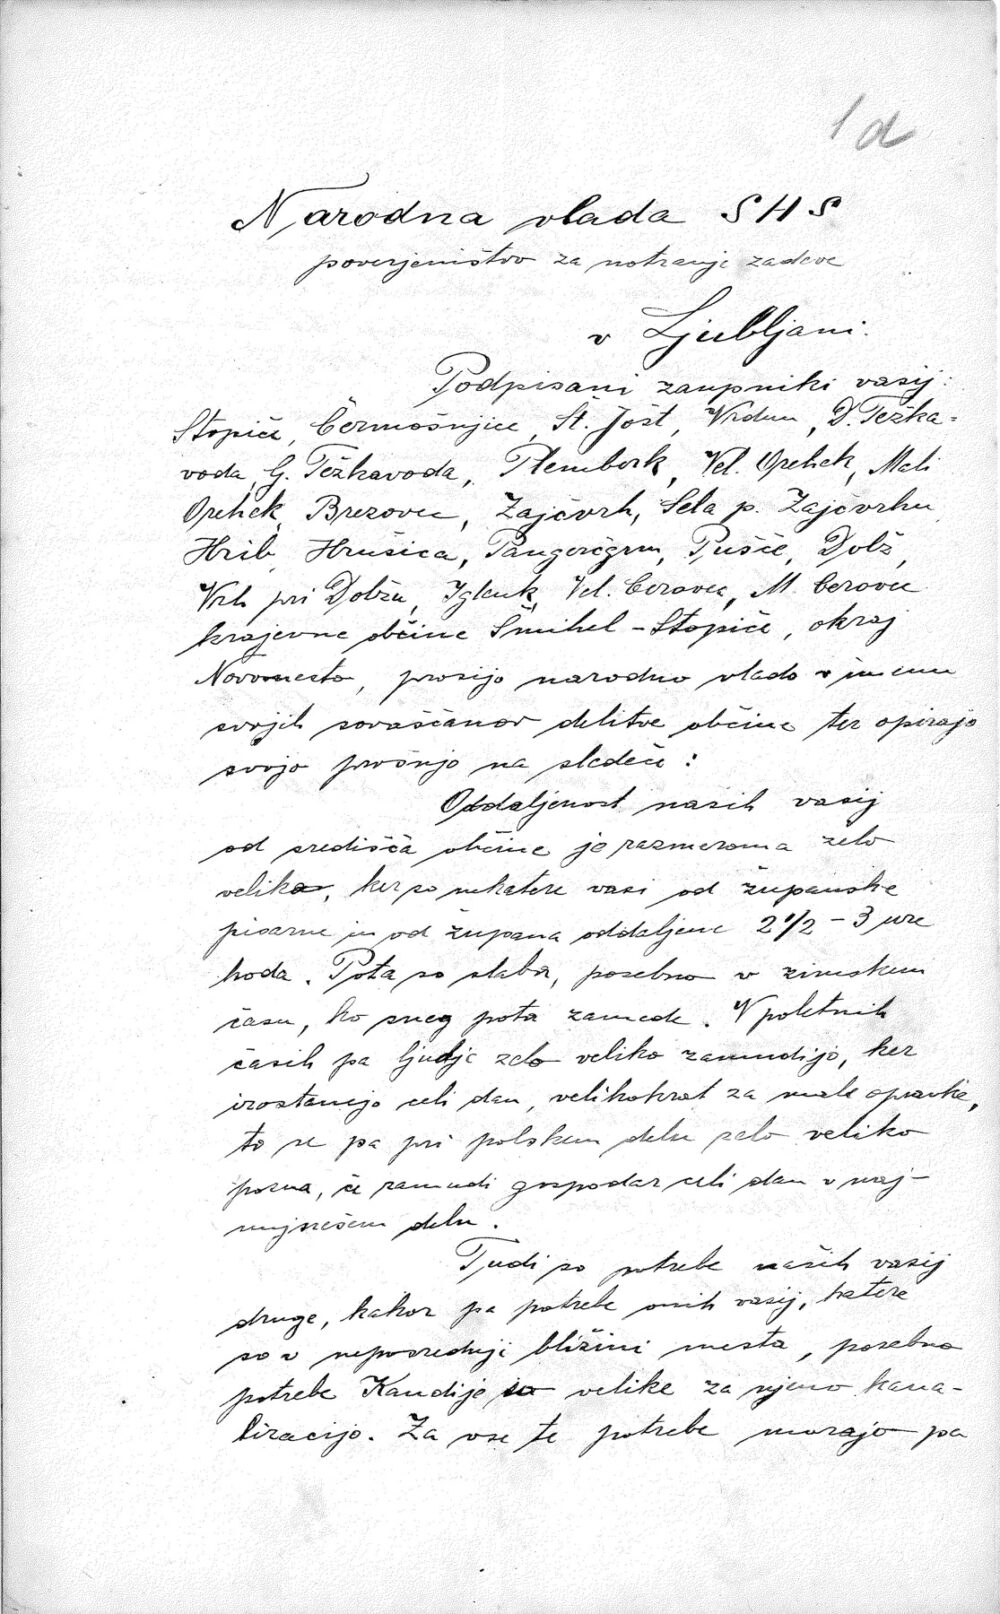 1d
Narodna vlada SHS
poverjeništvo za notranje zadeve
v Ljubljani.
Podpisani zaupniki vasij:
Stopiče, Čermošnjice, Št. Jošt, Vrdun, D. Težka-
voda, G. Težkavoda, Plemberk, Vel. Orehek, Mali
Orehek, Brezovec, Zajčvrh, Sela p. Zajčvrhu,
Hrib, Hrušica, Pangerčgrm, Pušče, Dolž,
Vrh pri Dolžu, Iglenk, Vel. Cerovec, M. Cerovec
krajevne občine Šmihel-Stopiče, okraj
Novomesto, prosijo narodno vlado v imenu
svojih sovaščanov delitve občine ter opirajo
svojo prošnjo na sledeče:
Oddaljenost naših vasij
od središča občine je razmeroma zelo
velika, ker so nekatere vasi od županske
pisarne in od župana oddaljene 2 1/2 - 3 ure
hoda. Pota so slaba, posebno v zimskem
času, ko sneg pota zamede. V poletnih
časih pa ljudje zelo veliko zamudijo, ker
izostanejo celi dan, velikokrat za male opravke,
to se pa pri polskem delu zelo veliko
pozna, če zamudi gospodar celi dan v naj-
nujnešem delu.
Tudi so potrebe naših vasij
druge, kakor pa potrebe onih vasij, katere
so v neposrednji bližini mesta, posebno
potrebe Kandije so velike za njeno kana-
lizacijo. Za vse te potrebe morajo pa